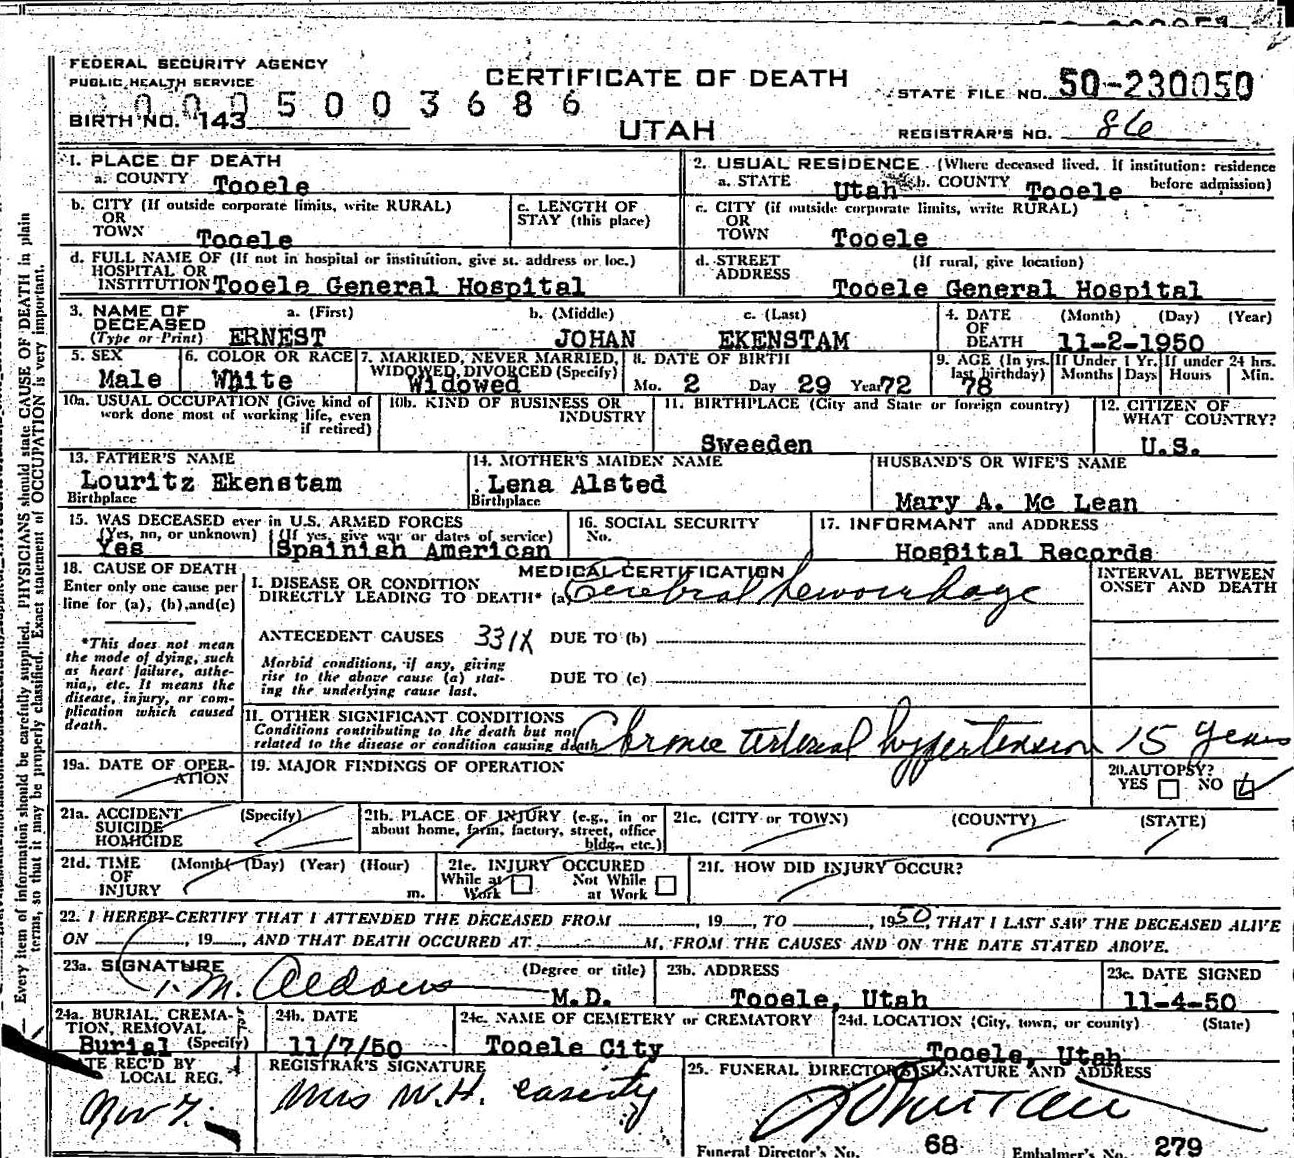 FEDERAL SECURITY AGENCY
PUBLIC HEALTH SERVICE
CERTIFICATE OF DEATH
STATE FILE NO. 50-230050
0005003686
BIRTH NO. 143
UTAH
REGISTRAR'S NO. 86
1. PLACE OF DEATH
a. COUNTY Tooele
2. USUAL RESIDENCE (Where deceased lived. If institution: residence before admission)
a. STATE Utah b. COUNTY Tooele
b. CITY (If outside corporate limits, write RURAL)
OR
TOWN Tooele
c. LENGTH OF
STAY (this place)
c. CITY (if outside corporate limits, write RURAL)
OR
TOWN Tooele
d. FULL NAME OF (If not in hospital or institution, give st. address or loc.)
HOSPITAL OR
INSTITUTION Tooele General Hospital
d. STREET (If rural, give location)
ADDRESS Tooele General Hospital
3. NAME OF DECEASED (Type or Print)
a. (First) ERNEST
b. (Middle) JOHAN
c. (Last) EKENSTAM
4. DATE OF DEATH (Month) (Day) (Year)
11-2-1950
5. SEX
Male
6. COLOR OR RACE
White
7. MARRIED, NEVER MARRIED,
WIDOWED, DIVORCED (Specify)
Widowed
8. DATE OF BIRTH
Mo. 2 Day 29 Year 72
9. AGE (In yrs. last birthday) 78
If Under 1 Yr. Months Days
If under 24 hrs. Hours Min.
10a. USUAL OCCUPATION (Give kind of
work done most of working life, even
if retired)
10b. KIND OF BUSINESS OR
INDUSTRY
11. BIRTHPLACE (City and State or foreign country)
Sweeden
12. CITIZEN OF
WHAT COUNTRY?
U.S.
13. FATHER'S NAME
Louritz Ekenstam
Birthplace
14. MOTHER'S MAIDEN NAME
Lena Alsted
Birthplace
HUSBAND'S OR WIFE'S NAME
Mary A. Mc Lean
15. WAS DECEASED ever in U.S. ARMED FORCES
(Yes, no, or unknown) (If yes, give war or dates of service)
Yes Spainish American
16. SOCIAL SECURITY
No.
17. INFORMANT and ADDRESS
Hospital Records
18. CAUSE OF DEATH
Enter only one cause per
line for (a), (b), and (c)
*This does not mean
the mode of dying, such
as heart failure, asthe-
nia, etc. It means the
disease, injury, or com-
plication which caused
death.
MEDICAL CERTIFICATION
I. DISEASE OR CONDITION
DIRECTLY LEADING TO DEATH* (a) Cerebral hemorrhage
ANTECEDENT CAUSES 331X DUE TO (b)
Morbid conditions, if any, giving
rise to the above cause (a) stat-
ing the underlying cause last.
DUE TO (c)
INTERVAL BETWEEN
ONSET AND DEATH
II. OTHER SIGNIFICANT CONDITIONS
Conditions contributing to the death but not
related to the disease or condition causing death
Chronic Arterial hypertension 15 years
19a. DATE OF OPER-
ATION
19. MAJOR FINDINGS OF OPERATION
20. AUTOPSY?
YES NO
21a. ACCIDENT (Specify)
SUICIDE
HOMICIDE
21b. PLACE OF INJURY (e.g., in or
about home, farm, factory, street, office
bldg., etc.)
21c. (CITY or TOWN) (COUNTY) (STATE)
21d. TIME (Month) (Day) (Year) (Hour)
OF
INJURY m.
21e. INJURY OCCURED
While at Work Not While at Work
21f. HOW DID INJURY OCCUR?
22. I HEREBY CERTIFY THAT I ATTENDED THE DECEASED FROM , 19 TO , 1950, THAT I LAST SAW THE DECEASED ALIVE
ON , 19 , AND THAT DEATH OCCURED AT M, FROM THE CAUSES AND ON THE DATE STATED ABOVE.
23a. SIGNATURE (Degree or title)
M.D.
23b. ADDRESS
Tooele, Utah
23c. DATE SIGNED
11-4-50
24a. BURIAL, CREMA-
TION, REMOVAL
Burial (Specify)
24b. DATE
11/7/50
24c. NAME OF CEMETERY or CREMATORY
Tooele City
24d. LOCATION (City, town, or county) (State)
Tooele, Utah
DATE REC'D BY
LOCAL REG.
Nov 7.
REGISTRAR'S SIGNATURE
Mrs W.H. Cassity
25. FUNERAL DIRECTORS SIGNATURE AND ADDRESS
Funeral Director's No. 68 Embalmer's No. 279
Every item of information should be carefully supplied. PHYSICIANS should state CAUSE OF DEATH in plain
terms, so that it may be properly classified. Exact statement of OCCUPATION is very important.